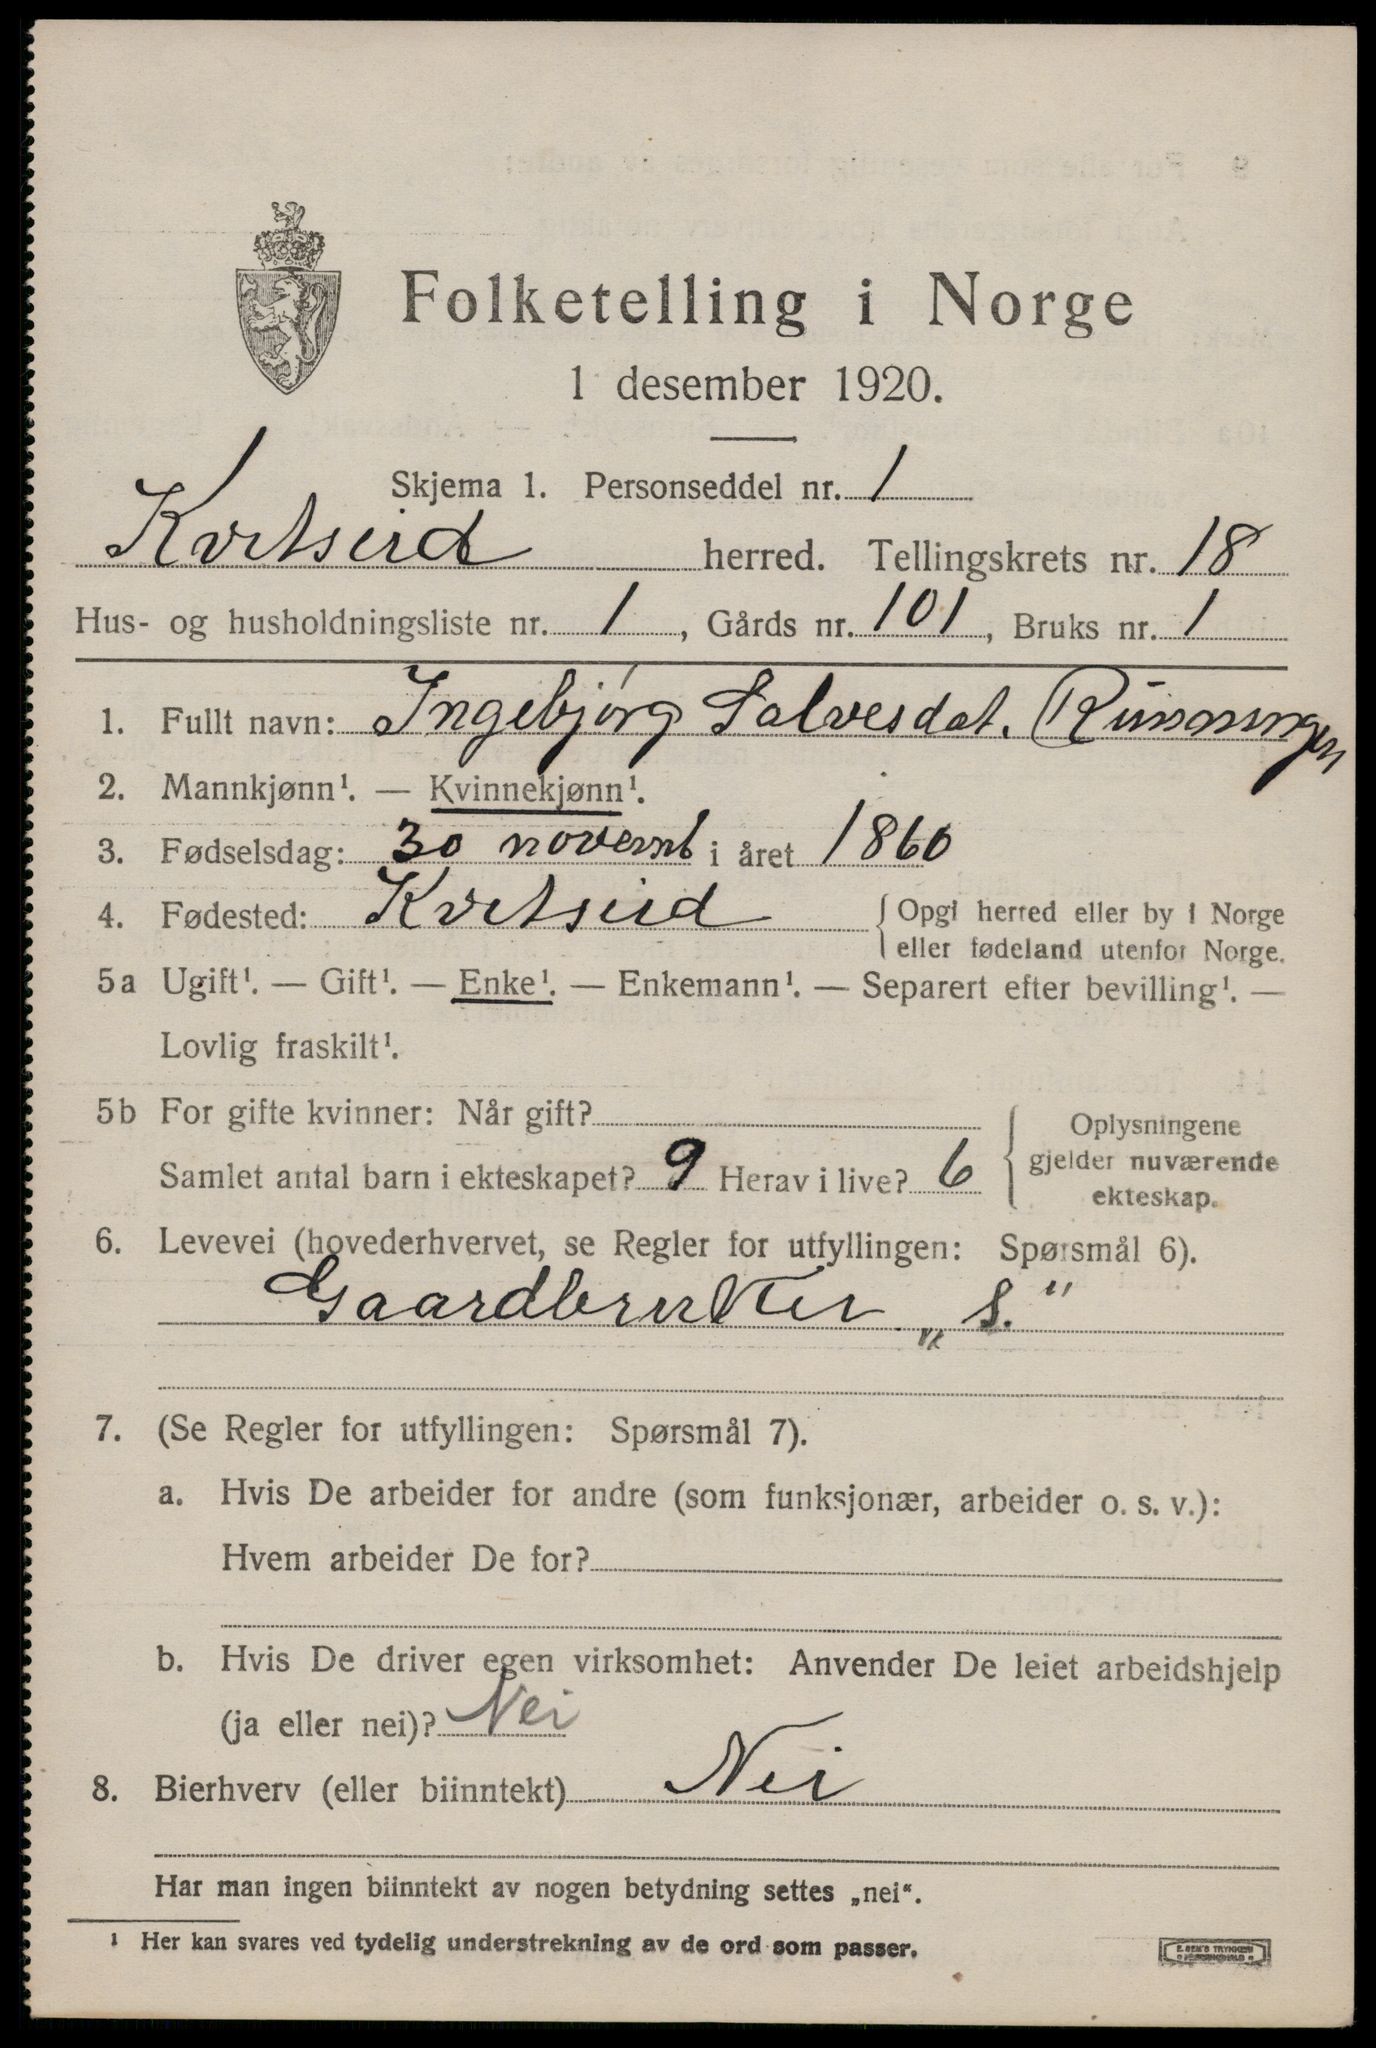 Folketelling i Norge
1 desember 1920.
Skjema 1. Personseddel nr. 1
Kvitseid herred. Tellingskrets nr. 18
Hus- og husholdningsliste nr. 1, Gårds nr. 101, Bruks nr. 1
1. Fullt navn: Ingebjørg Salvesdat. Rünningen
2. Mannkjønn¹. — Kvinnekjønn¹.
3. Fødselsdag: 30 novemb i året 1860
4. Fødested: Kvitseid
{ Opgi herred eller by i Norge
eller fødeland utenfor Norge.
5a Ugift¹. — Gift¹. — Enke¹. — Enkemann¹. — Separert efter bevilling¹. —
Lovlig fraskilt¹.
5b For gifte kvinner: Når gift?
Samlet antal barn i ekteskapet? 9 Herav i live? 6
Oplysningene
gjelder nuværende
ekteskap.
6. Levevei (hovederhvervet, se Regler for utfyllingen: Spørsmål 6).
Gaardbruker „S."
7. (Se Regler for utfyllingen: Spørsmål 7).
a. Hvis De arbeider for andre (som funksjonær, arbeider o. s. v.):
Hvem arbeider De for?
b. Hvis De driver egen virksomhet: Anvender De leiet arbeidshjelp
(ja eller nei)? Nei
8. Bierhverv (eller biinntekt) Nei
Har man ingen biinntekt av nogen betydning settes „nei“.
¹ Her kan svares ved tydelig understrekning av de ord som passer.